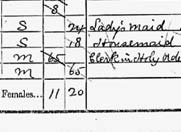 8
S 24 Lady's Maid
S 18 Housemaid
M 65 Clerk in Holy Orde
M 65
Females... 11 20